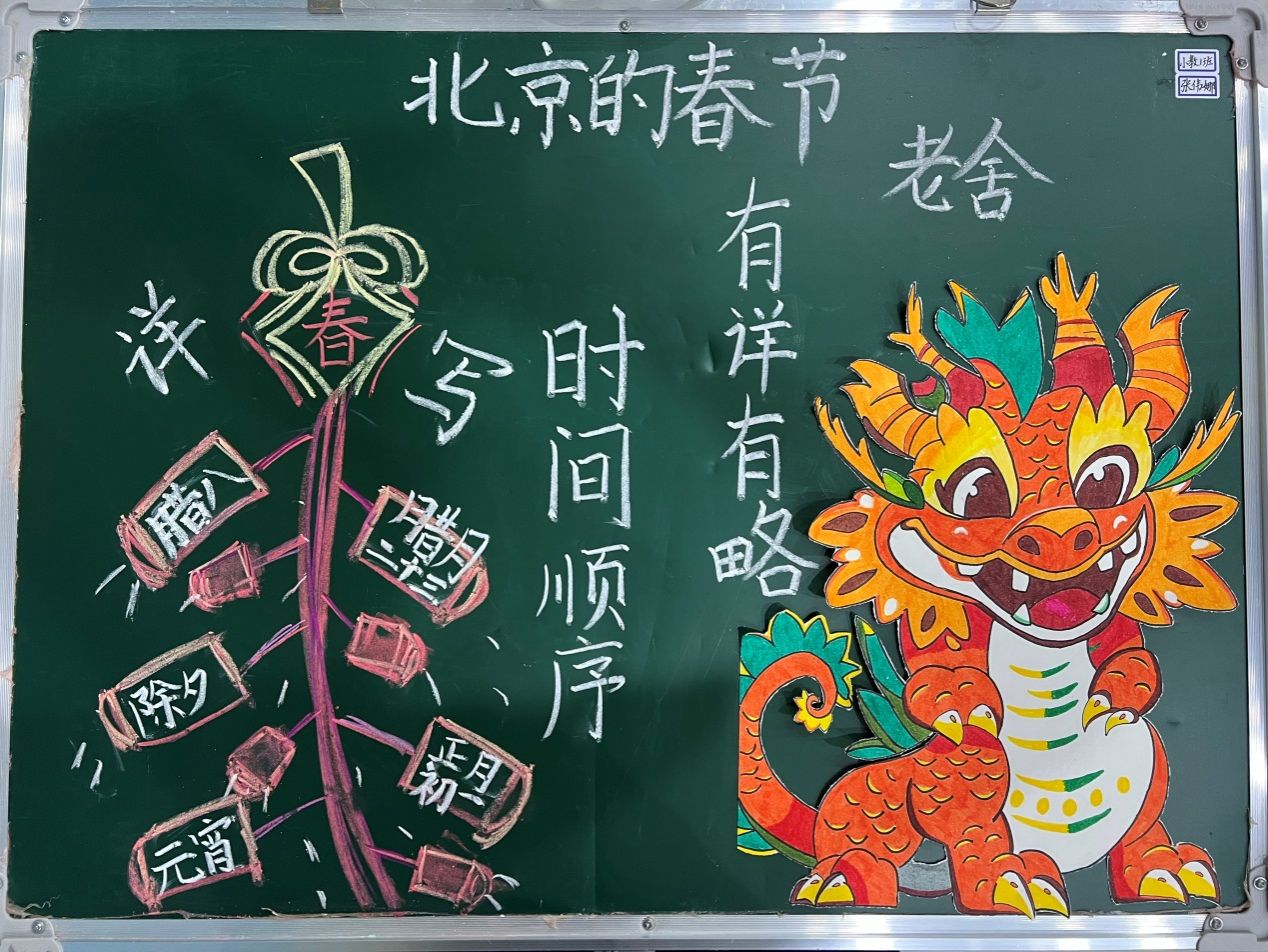 北京的春节
老舍
小教1班
张伟娜
详写
春
腊八
腊月
二十三
除夕
正月
初一
元宵
时间顺序
有详有略